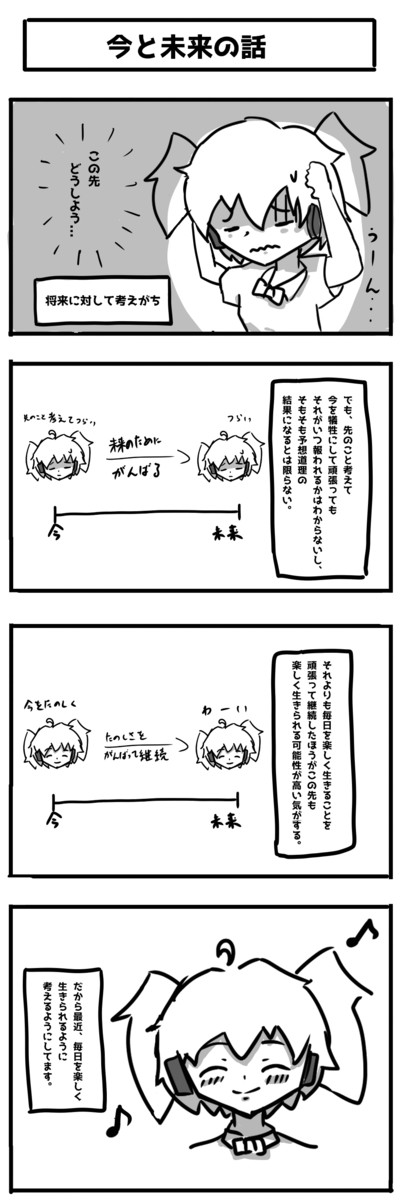 今と未来の話
この先
どうしよう…
うーん…
将来に対して考えがち
でも、先のこと考えて
今を犠牲にして頑張っても
それがいつ報われるかはわからないし、
そもそも予想道理の
結果になるとは限らない。
先のこと考えてつらい
未来のために
がんばる
つらい
今
未来
それよりも毎日を楽しく生きることを
頑張って継続したほうがこの先も
楽しく生きられる可能性が高い気がする。
今をたのしく
たのしさを
がんばって継続
わーい
今
未来
だから最近、毎日を楽しく
生きられるように
考えるようにしてます。